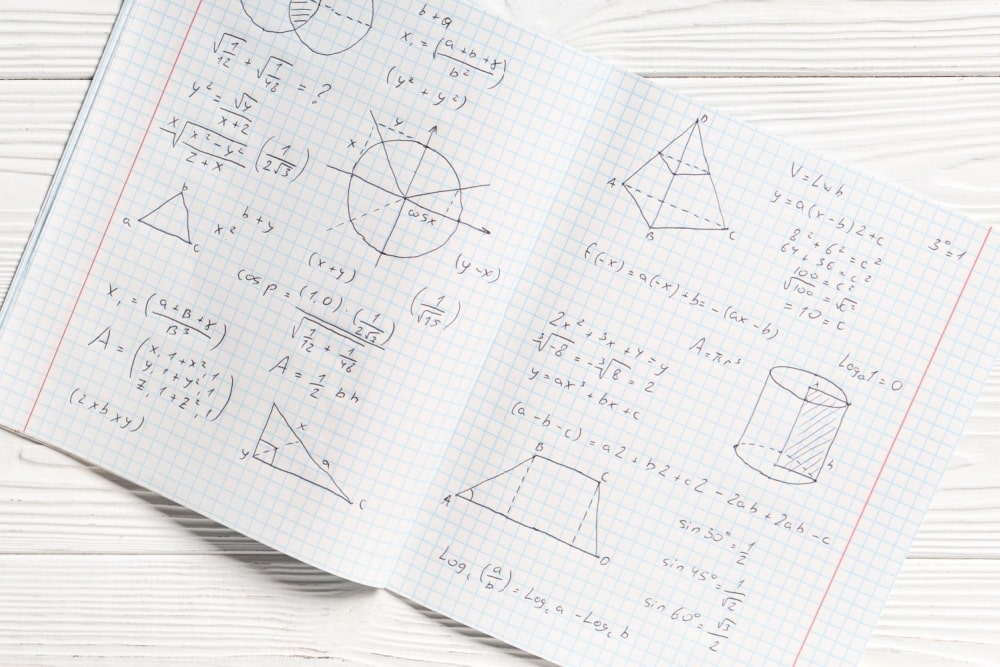 b+a
x₁ = (a+b+γ / b²)
(y² + y²)
√1/12 + √1/48 = ?
y² = √y / x+2
x√x²-y² / 2+x (1 / 2√3)
y
x
cosx
b
a
c
b+y
x²
(x+y)
(y-x)
x₁ = (a+B+γ / B³)
cos p = (1.0)·(1 / 2√3) / √1/12 + 1/48
(1 / √15)
A = (x, 1+x², 1
y, 1+y², 1
z, 1+z², 1)
A = 1/2 bh
(2xbxy)
x
y
a
C
D
A
B
C
V=Lwh
y=a(x-b)2+c
8²+6²=c²
64+36=c²
100=c²
√100=√c²
=10=c
3°=1
f(-x)=a(-x)+b=-(ax-b)
2x²+3x+y=y
³√-8=-³√8=2
y=ax³+bx+c
A=πr³
Logₐ1=0
x
h
(a-b-c)=a2+b2+c2-2ab+2ab-c
B
C
A
D
sin30°=1/2
sin45°=1/√2
sin60°=√3/2
Log꜀(a/b)=Log꜀a-Log꜀b